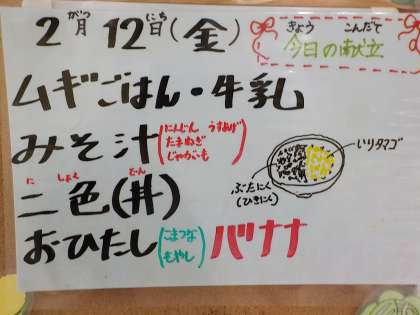 がつ にち
2月12日(金)
きょう こんだて
今日の献立
ムギごはん・牛乳
みそ汁(にんじん うすあげ
たまねぎ
じゃがいも)
に しょく どん
二色(丼)
おひたし(こまつな
もやし)バナナ
いりタマゴ
ぶたにく
(ひきにく)